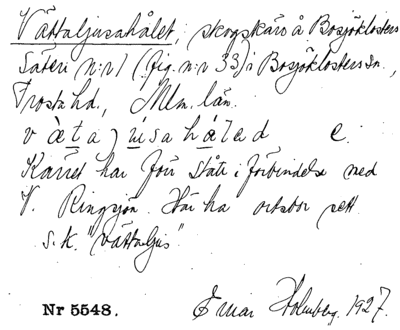 Vättaljusahålet, skogskärr å Bosjöklosters
Säteri n:r 1 (fig. n:r 33) i Bosjöklosters sn.,
Frosta hd., Mlm. län.
v è t a j u s a h å l e d e.
Kärret har förr stått i förbindelse med
V. Ringsjön. Här ha ortsbor sett
s.k. "vättaljus"
Nr 5548. Einar Holmberg. 1927.